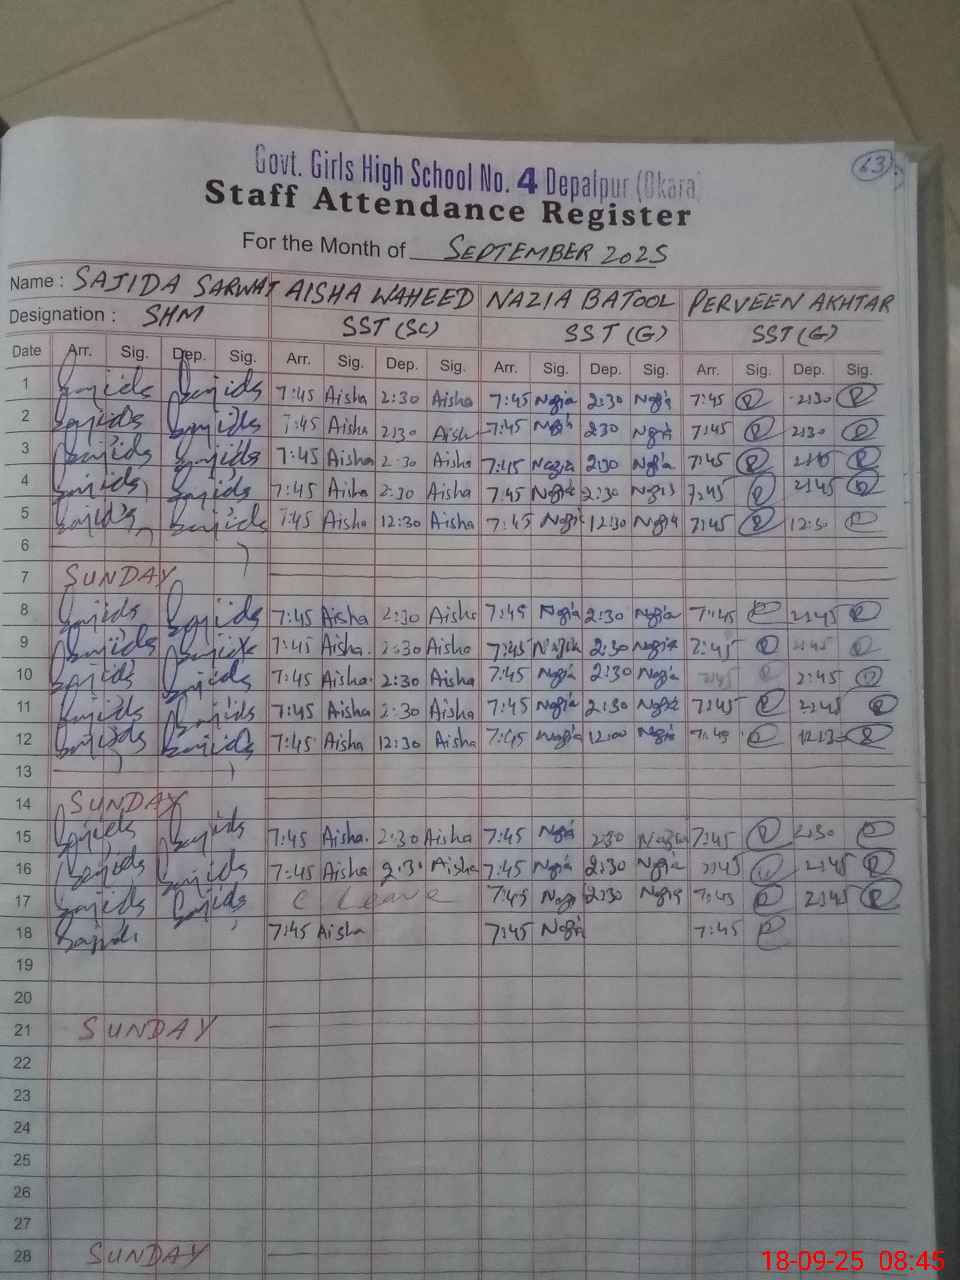 63
Govt. Girls High School No. 4 Depalpur (Okara)
Staff Attendance Register
For the Month of SEPTEMBER 2025
Name : SAJIDA SARWAT AISHA WAHEED NAZIA BATOOL PERVEEN AKHTAR
Designation : SHM SST (SC) SST (G) SST (G)
Date Arr. Sig. Dep. Sig. Arr. Sig. Dep. Sig. Arr. Sig. Dep. Sig. Arr. Sig. Dep. Sig.
1 7:45 Aisha 2:30 Aisha 7:45 Nazia 2:30 Nazia 7:45 2:30
2 7:45 Aisha 2:30 Aisha 7:45 2:30 7:45 2:30
3 7:45 Aisha 2:30 Aisha 7:45 Nazia 2:30 Nazia 7:45
4 7:45 Aisha 2:30 Aisha 7:45 Nazia 2:30 7:45 2:45
5 7:45 Aisha 12:30 Aisha 7:45 Nazia 12:30 Nazia 7:45 12:30
6
7 SUNDAY
8 7:45 Aisha 2:30 Aisha 7:45 Nazia 2:30 Nazia 7:45 2:45
9 7:45 Aisha. 2:30 Aisha 7:45 Nazia 2:30 Nazia 7:45 2:45
10 7:45 Aisha. 2:30 Aisha 7:45 Nazia 2:30 Nazia 7:45 2:45
11 7:45 Aisha 2:30 Aisha 7:45 Nazia 2:30 Nazia 7:45 2:45
12 7:45 Aisha 12:30 Aisha 7:45 Nazia 12:00 Nazia 7:45 12:30
13
14 SUNDAY
15 7:45 Aisha. 2:30 Aisha 7:45 Nazia 2:30 Nazia 7:45 2:30
16 7:45 Aisha 2:30 Aisha 7:45 Nazia 2:30 Nazia 2:45 2:45
17 C Leave 7:45 Nazia 2:30 Nazia 7:45 2:45
18 7:45 Aisha 7:45 Nazia 7:45
19
20
21 SUNDAY
22
23
24
25
26
27
28 SUNDAY
18-09-25 08:45